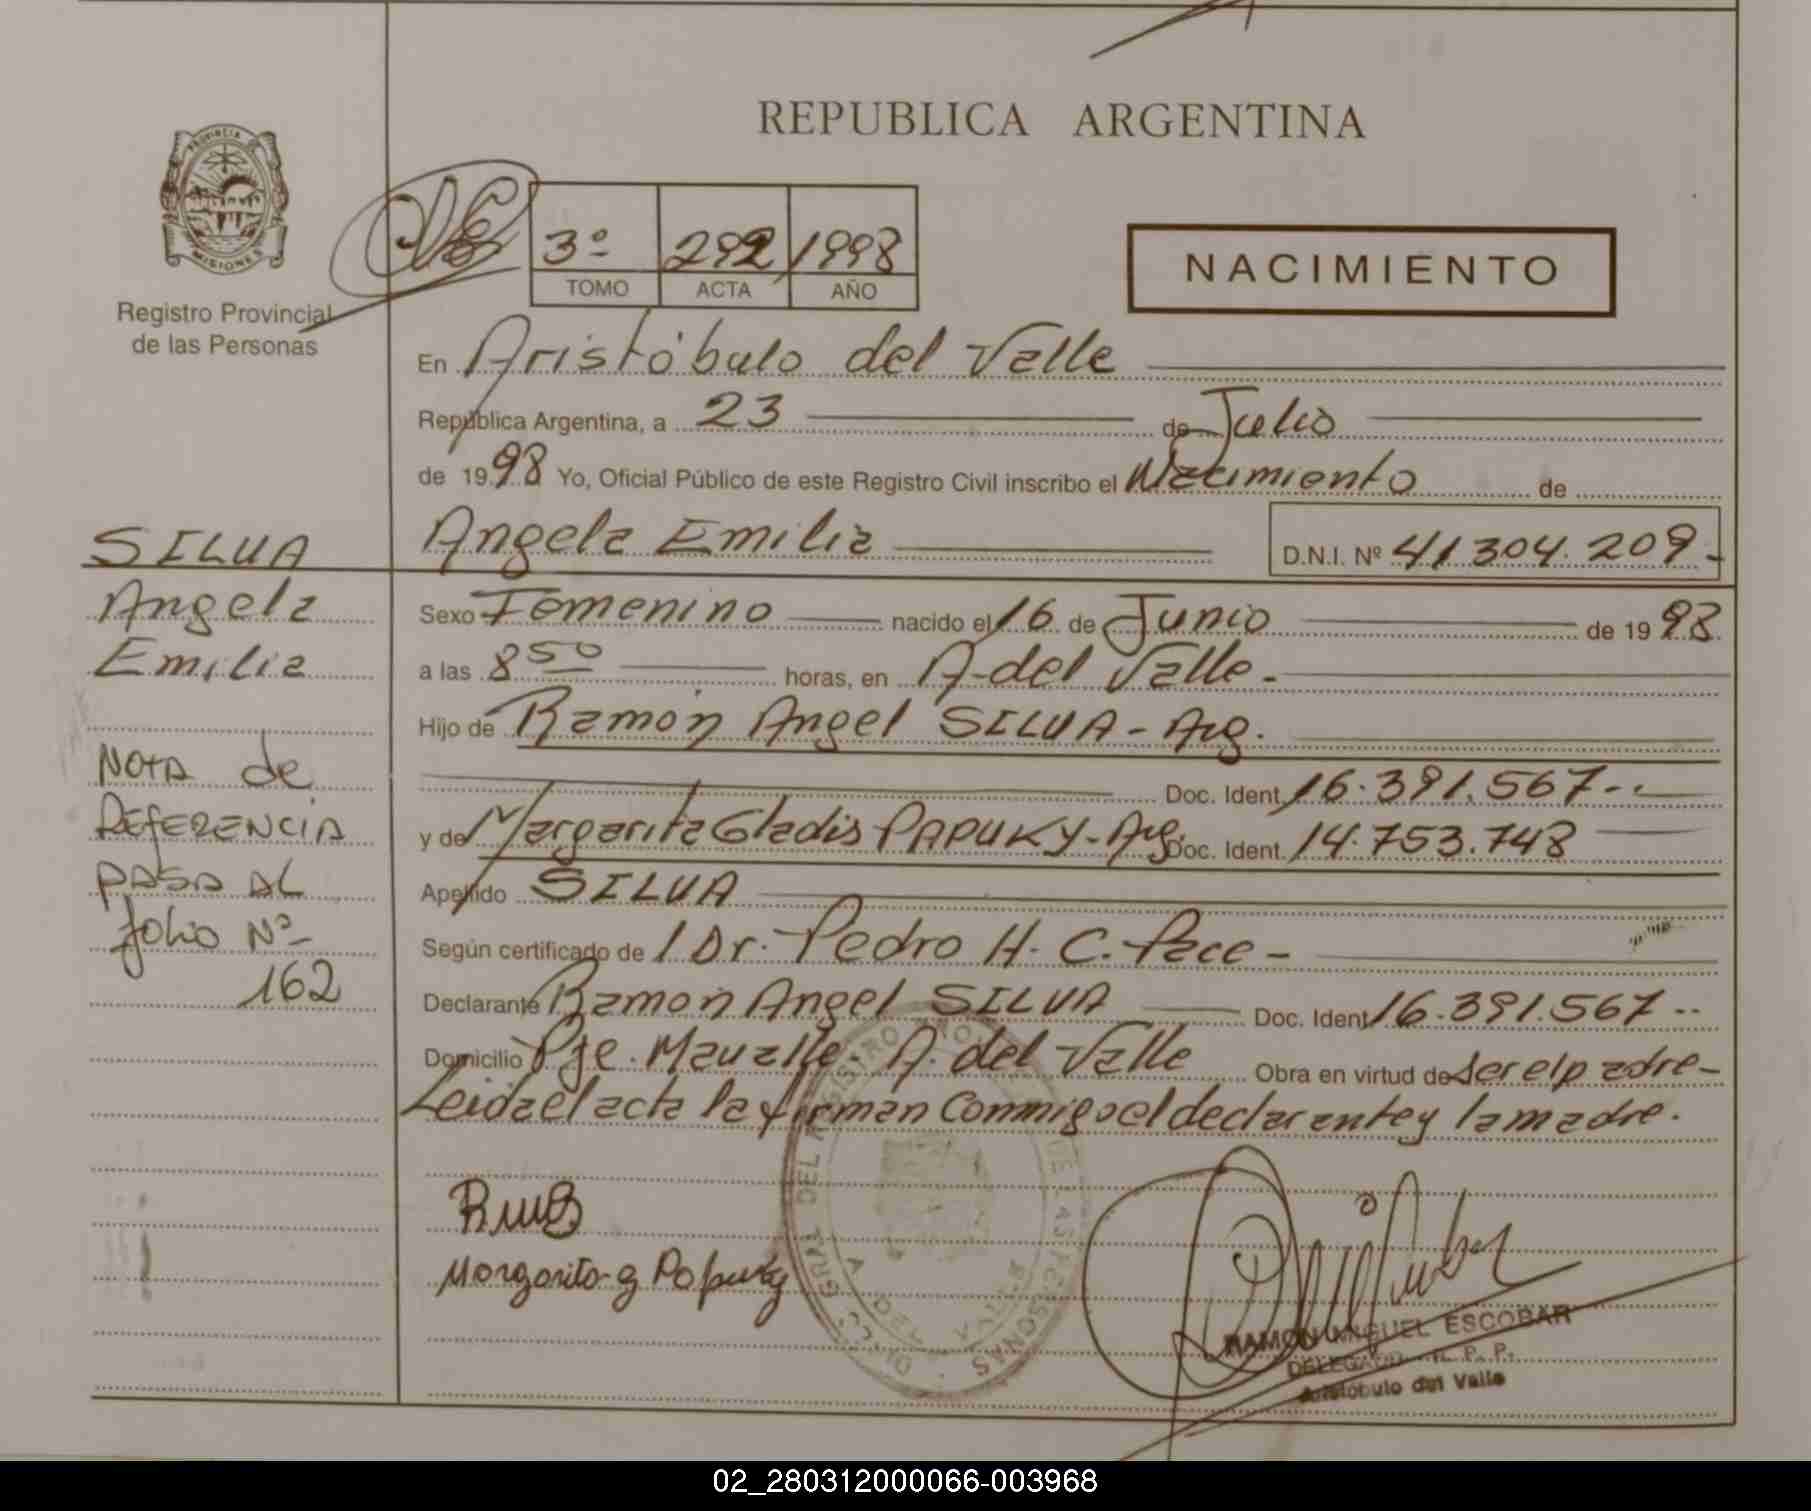 REPUBLICA ARGENTINA
PROVINCIA DE
MISIONES
Registro Provincial
de las Personas
3º 292 1998
TOMO ACTA AÑO
NACIMIENTO
En Aristóbulo del Valle
República Argentina, a 23 de Julio
de 1998 Yo, Oficial Público de este Registro Civil inscribo el Nacimiento de
Angela Emilia D.N.I. Nº 41.304.209.-
SILVA
Angela
Emilia
NOTA de
REFERENCIA
PASA AL
folio Nº
162
Sexo Femenino nacido el 16 de Junio de 1998.
a las 8 50 horas, en A. del Valle.-
Hijo de Ramón Angel SILVA - Arg.
Doc. Ident. 16.391.567--
y de Margarita Gladis PAPUKY - Arg. Doc. Ident. 14.753.748
Apellido SILVA
Según certificado de l Dr. Pedro H. C. Pace -
Declarante Ramón Angel SILVA Doc. Ident. 16.391.567--
Domicilio Pje. Mavalle. A. del Valle Obra en virtud de ser el padre-
Leida el acta la firman Conmigo el declarante y la madre.
Margarita g Papuky
RAMON MIGUEL ESCOBAR
DELEGADO R. P. P.
Aristóbulo del Valle
02_280312000066-003968